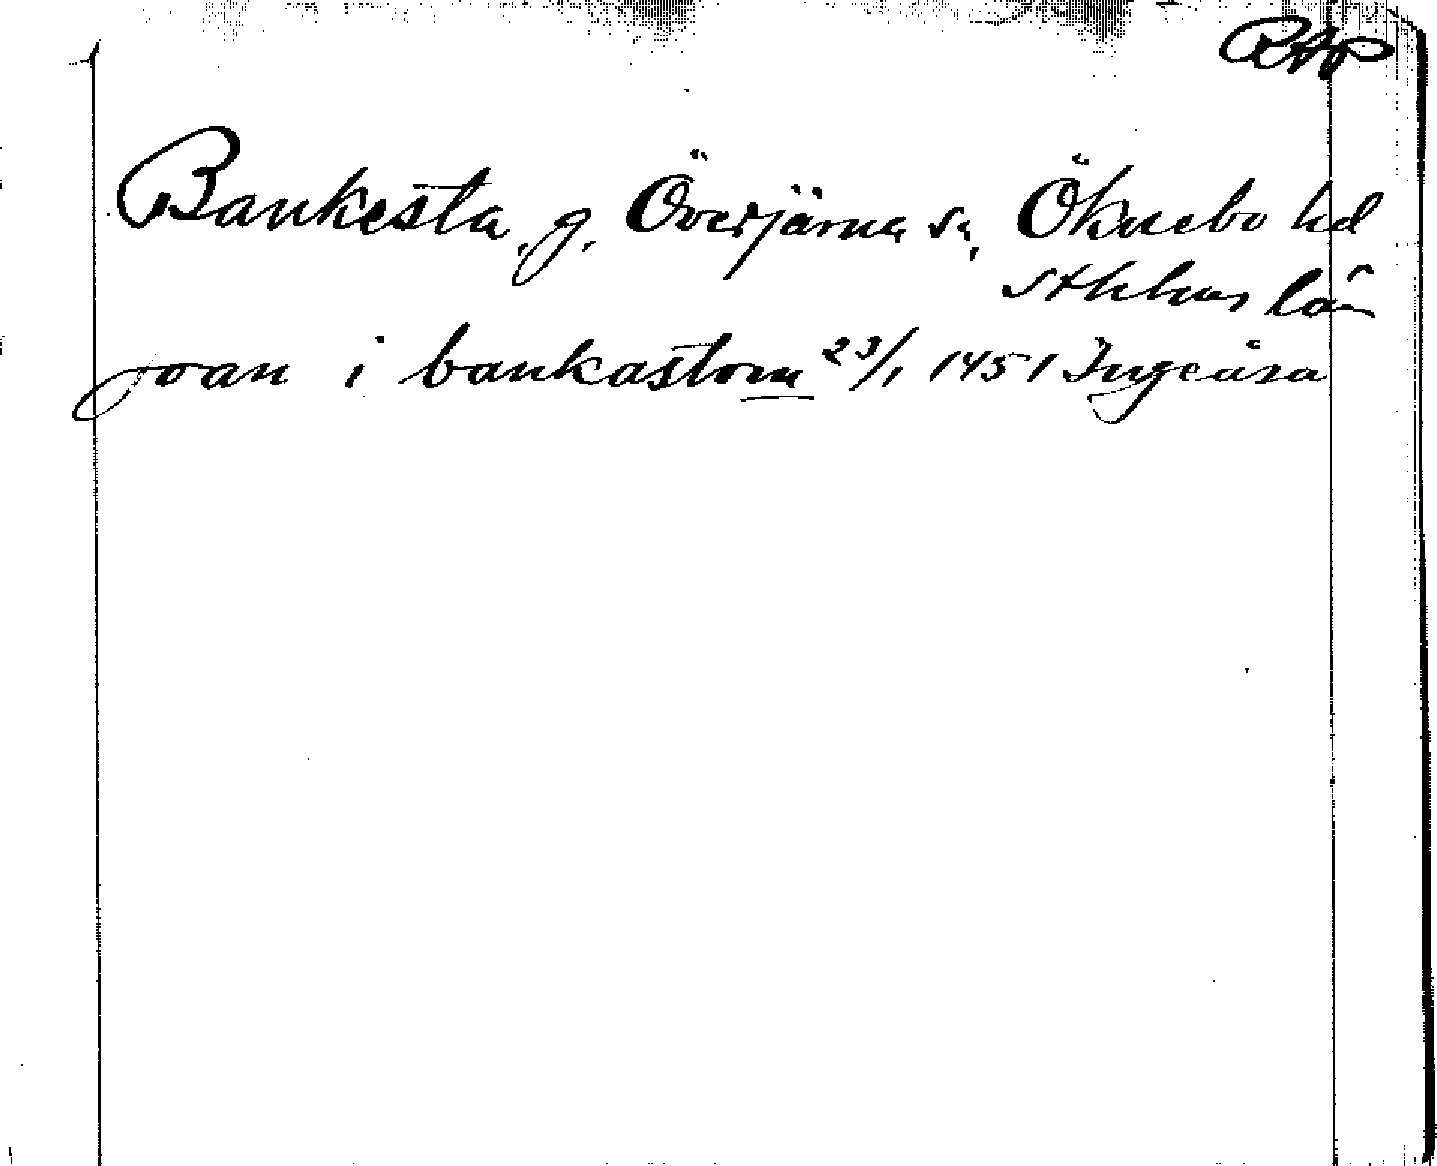 RAp
Bankesta, g. Överjärna sn, Öknebo hd
Sthlms län
joan i bankastom 23/1 1451 Ingeåsa